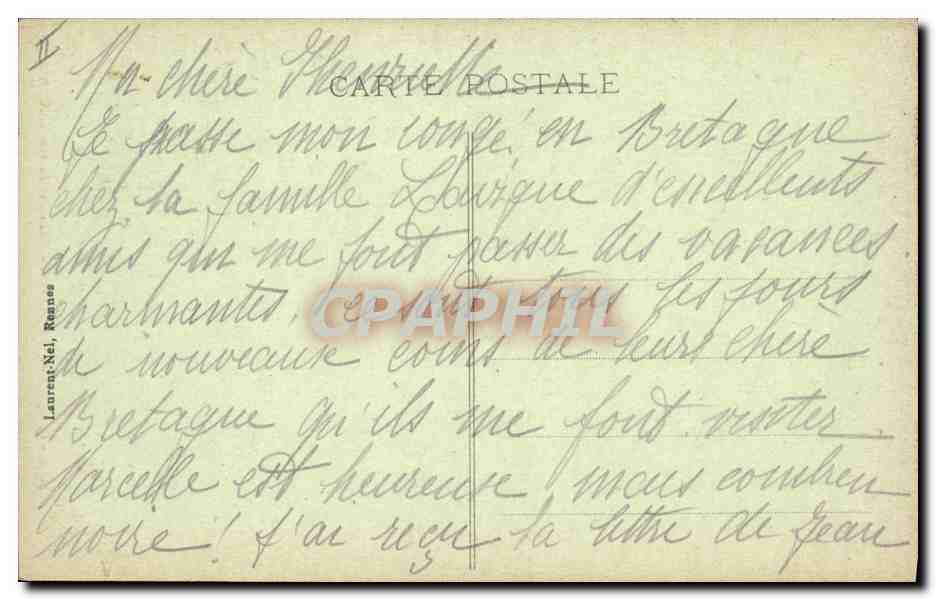 II
Ma chère Henriette
CARTE POSTALE
Je passe mon congé en Bretagne
chez la famille d'excellents
amis qui me font passer des vacances
charmantes, ce sont tous les jours
de nouveaux coins de leur chère
Bretagne qu'ils me font visiter
Marcelle est heureuse, mais combien
noire! J'ai reçu la lettre de Jean
Laurent-Nel, Rennes
CPAPHIL